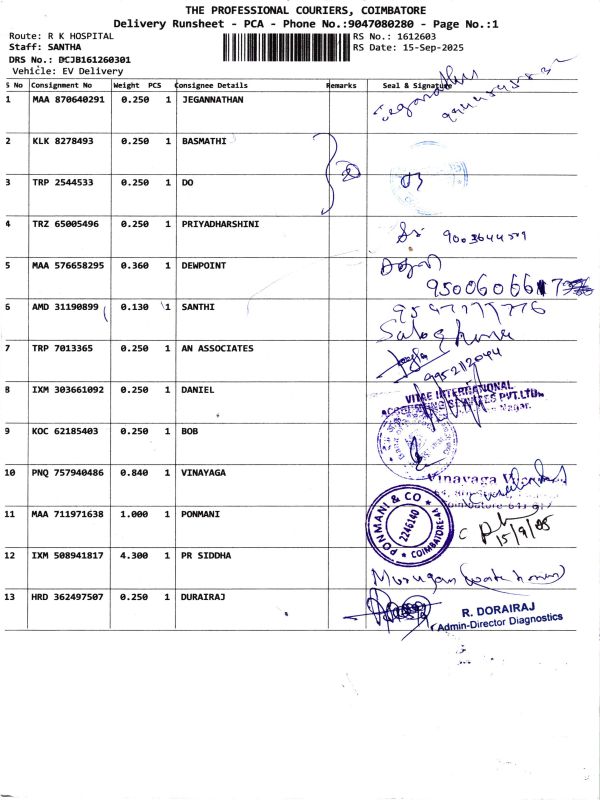 THE PROFESSIONAL COURIERS, COIMBATORE
Delivery Runsheet - PCA - Phone No.:9047080280 - Page No.:1
Route: R K HOSPITAL RS No.: 1612603
Staff: SANTHA RS Date: 15-Sep-2025
DRS No.: DCJB161260301
Vehicle: EV Delivery
S No Consignment No Weight PCS Consignee Details Remarks Seal & Signature
1 MAA 870640291 0.250 1 JEGANNATHAN Jegannathan
2 KLK 8278493 0.250 1 BASMATHI
3 TRP 2544533 0.250 1 DO
4 TRZ 65005496 0.250 1 PRIYADHARSHINI
5 MAA 576658295 0.360 1 DEWPOINT
6 AMD 31190899 0.130 1 SANTHI
7 TRP 7013365 0.250 1 AN ASSOCIATES 9952112094
8 IXM 303661092 0.250 1 DANIEL VITAE INTERNATIONAL
SERVICES PVT.LTD. Nagar.
9 KOC 62185403 0.250 1 BOB
10 PNQ 757940486 0.840 1 VINAYAGA Vinayaga
11 MAA 711971638 1.000 1 PONMANI PONMANI & CO 2246140 COIMBATORE-44 15/9/25
12 IXM 508941817 4.300 1 PR SIDDHA Murugan
13 HRD 362497507 0.250 1 DURAIRAJ R. DORAIRAJ
Admin-Director Diagnostics